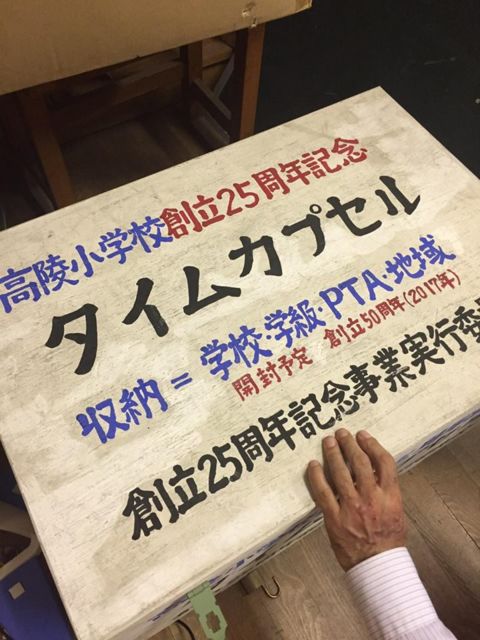 高陵小学校創立25周年記念
タイムカプセル
収納=学校・学級・PTA・地域
開封予定 創立50周年(2017年)
創立25周年記念事業実行委